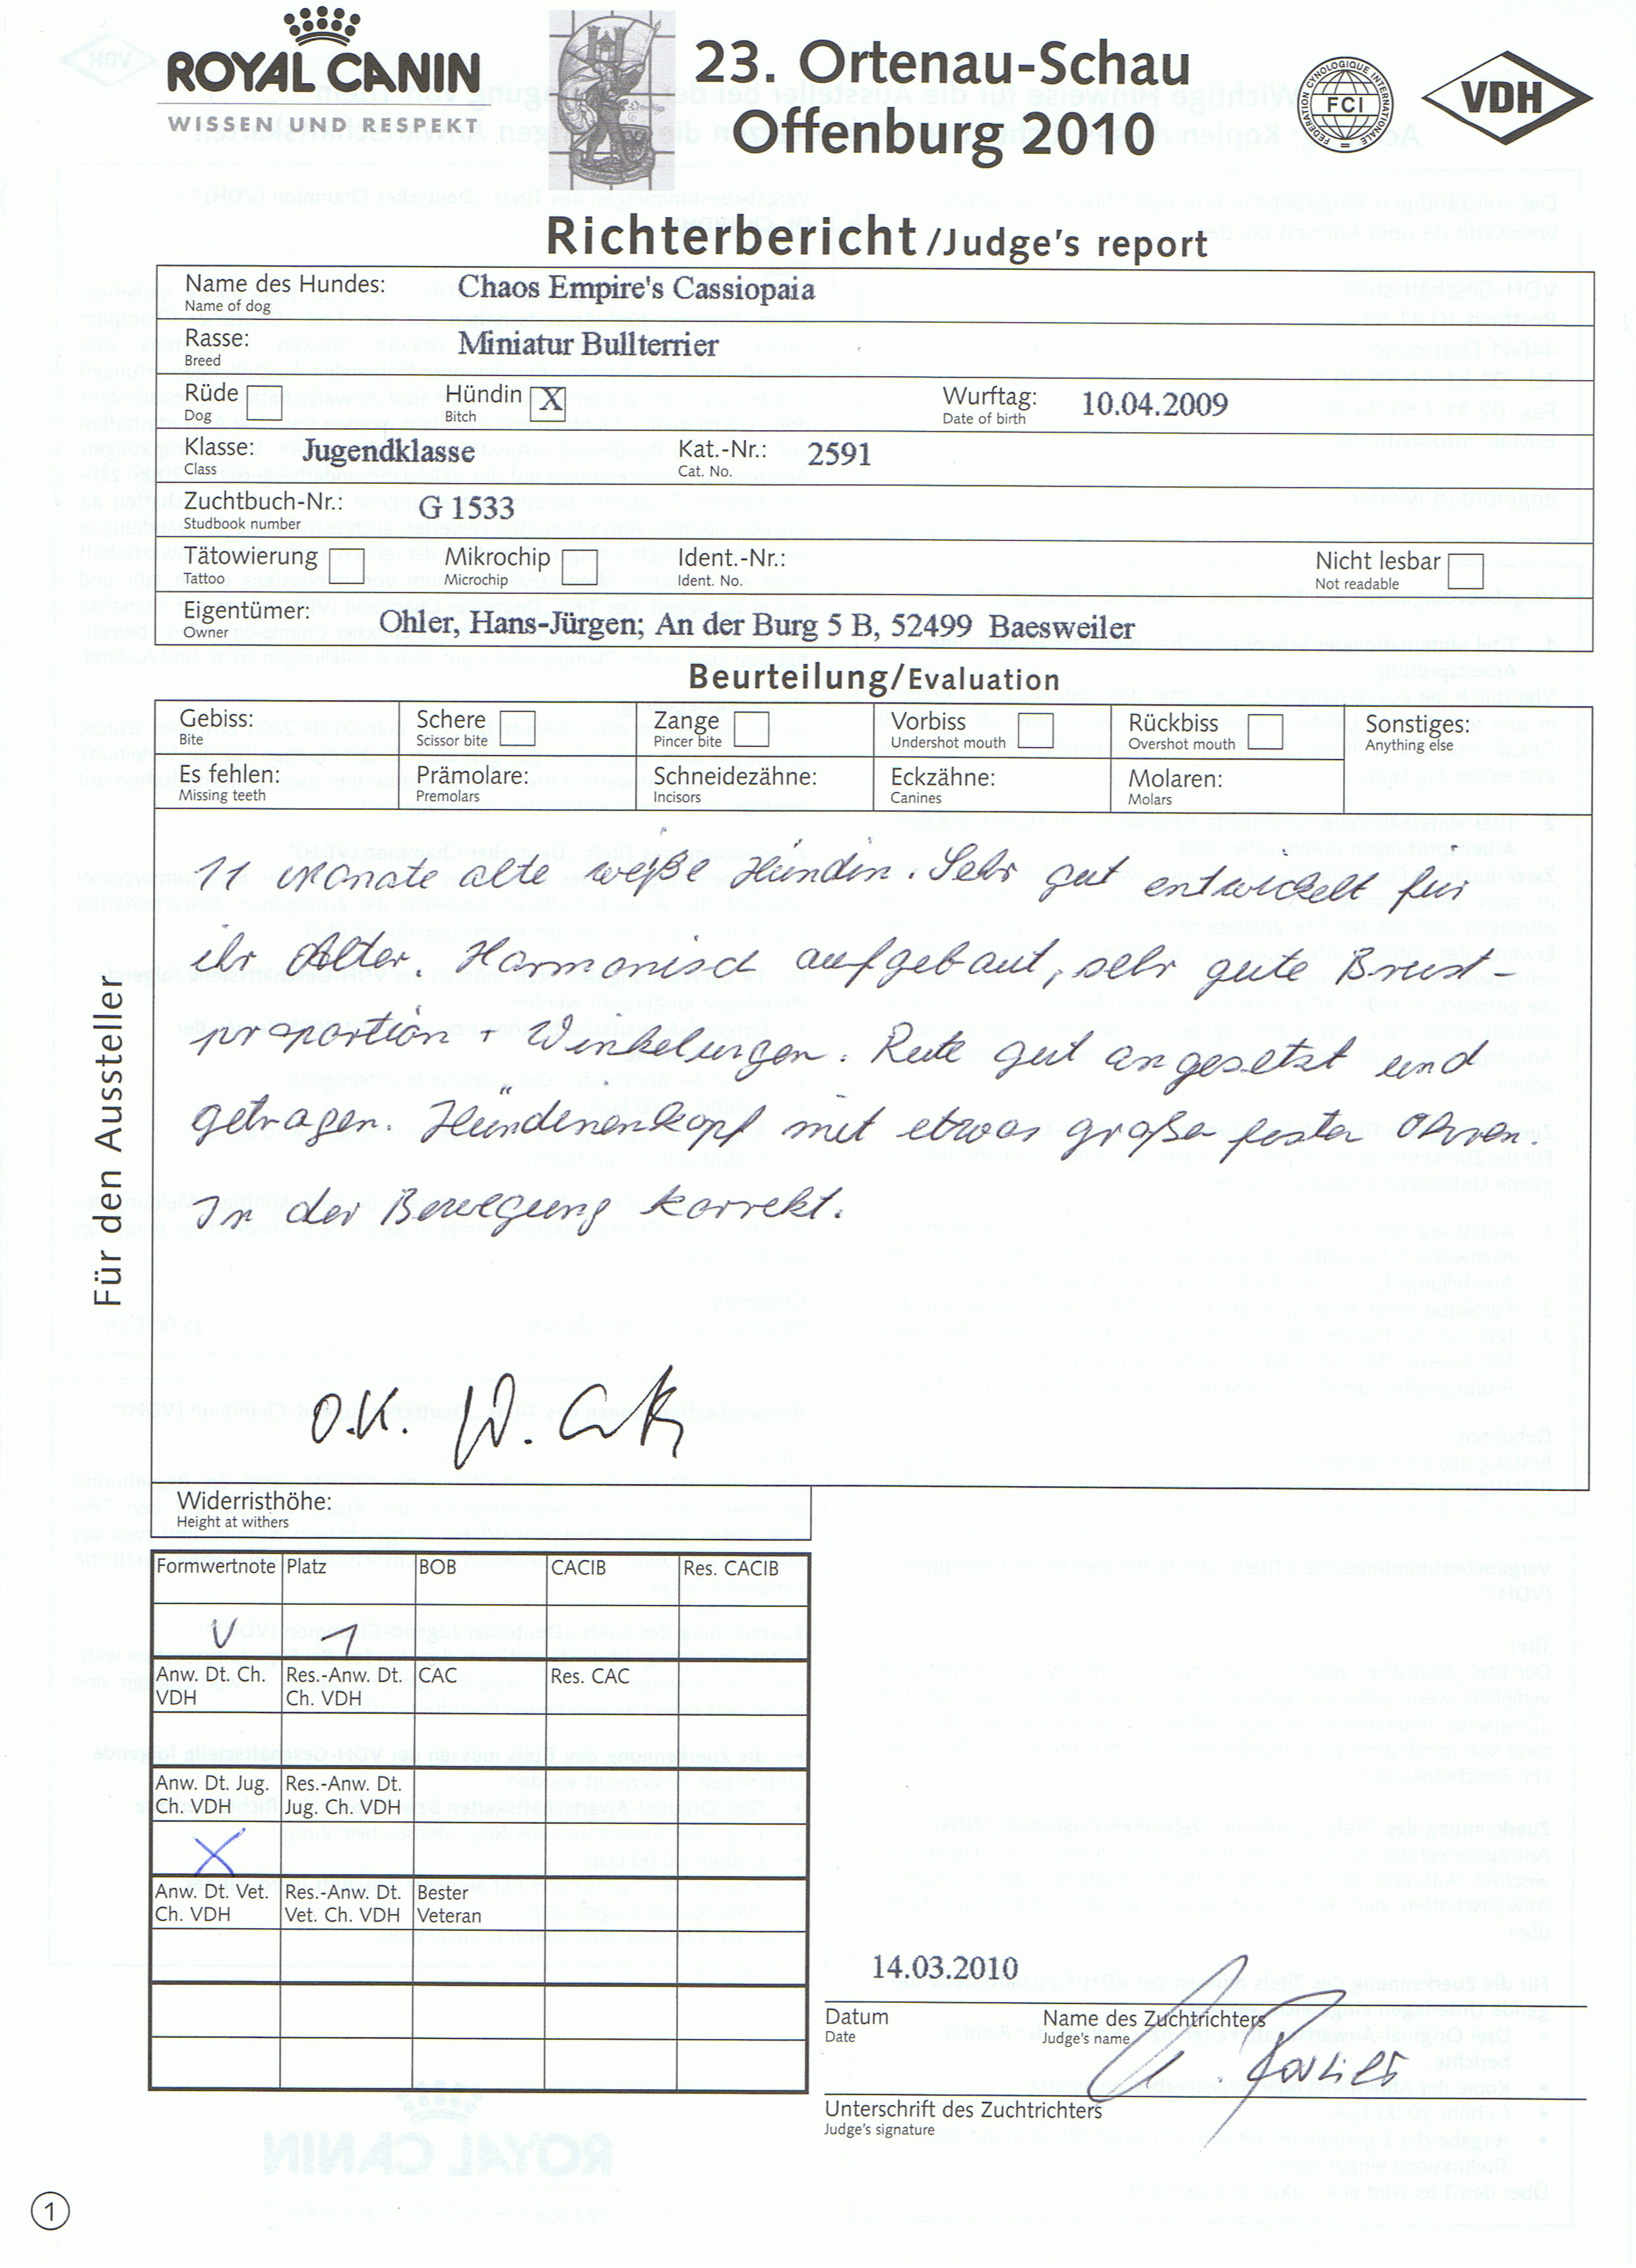 ROYAL CANIN
WISSEN UND RESPEKT
23. Ortenau-Schau
Offenburg 2010
FEDERATION CYNOLOGIQUE INTERNATIONALE
FCI
VDH
Richterbericht /Judge's report
Name des Hundes: Chaos Empire's Cassiopaia
Name of dog
Rasse: Miniatur Bullterrier
Breed
Rüde Hündin X Wurftag: 10.04.2009
Dog Bitch Date of birth
Klasse: Jugendklasse Kat.-Nr.: 2591
Class Cat. No.
Zuchtbuch-Nr.: G 1533
Studbook number
Tätowierung Mikrochip Ident.-Nr.: Nicht lesbar
Tattoo Microchip Ident. No. Not readable
Eigentümer: Ohler, Hans-Jürgen; An der Burg 5 B, 52499 Baesweiler
Owner
Beurteilung/Evaluation
Gebiss: Schere Zange Vorbiss Rückbiss Sonstiges:
Bite Scissor bite Pincer bite Undershot mouth Overshot mouth Anything else
Es fehlen: Prämolare: Schneidezähne: Eckzähne: Molaren:
Missing teeth Premolars Incisors Canines Molars
Für den Aussteller
11 Monate alte weiße Hündin. Sehr gut entwickelt für
ihr Alter. Harmonisch aufgebaut, sehr gute Brust-
proportion + Winkelungen. Rute gut angesetzt und
getragen. Hündinenkopf mit etwas große feste Ohren.
In der Bewegung korrekt.
O.K. W.
Widerristhöhe:
Height at withers
Formwertnote Platz BOB CACIB Res. CACIB
V 1
Anw. Dt. Ch. Res.-Anw. Dt. CAC Res. CAC
VDH Ch. VDH
Anw. Dt. Jug. Res.-Anw. Dt.
Ch. VDH Jug. Ch. VDH
X
Anw. Dt. Vet. Res.-Anw. Dt. Bester
Ch. VDH Vet. Ch. VDH Veteran
14.03.2010
Datum Name des Zuchtrichters
Date Judge's name
Unterschrift des Zuchtrichters
Judge's signature
1